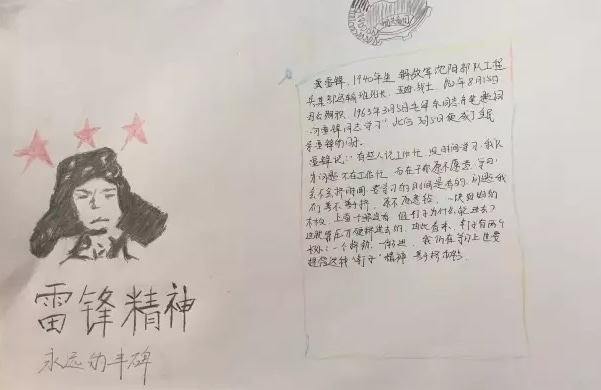 雷锋精神
永远的丰碑
雷锋,1940年生 解放军沈阳部队工程
兵某部运输班班长、五好战士,1962年8月15日
因公殉职。1963年3月5日毛泽东同志亲笔题词
"向雷锋同志学习"此后3月5日便成了学
雷锋纪念日。
雷锋说:"有些人说工作忙,没时间学习,我认
为问题不在工作忙,而在于你愿不愿意学习,
会不会挤时间。要学习的时间是有的,问题是我
们善不善于挤,愿不愿意钻。一块好好的
木板,上面一个眼没有,但钉子为什么能进去?
这就是压力硬挤进去的,由此看来,钉子有两个
长处:一个挤劲,一个钻劲。我们在学习上也要
提倡这种"钉子"精神,善于挤和钻。